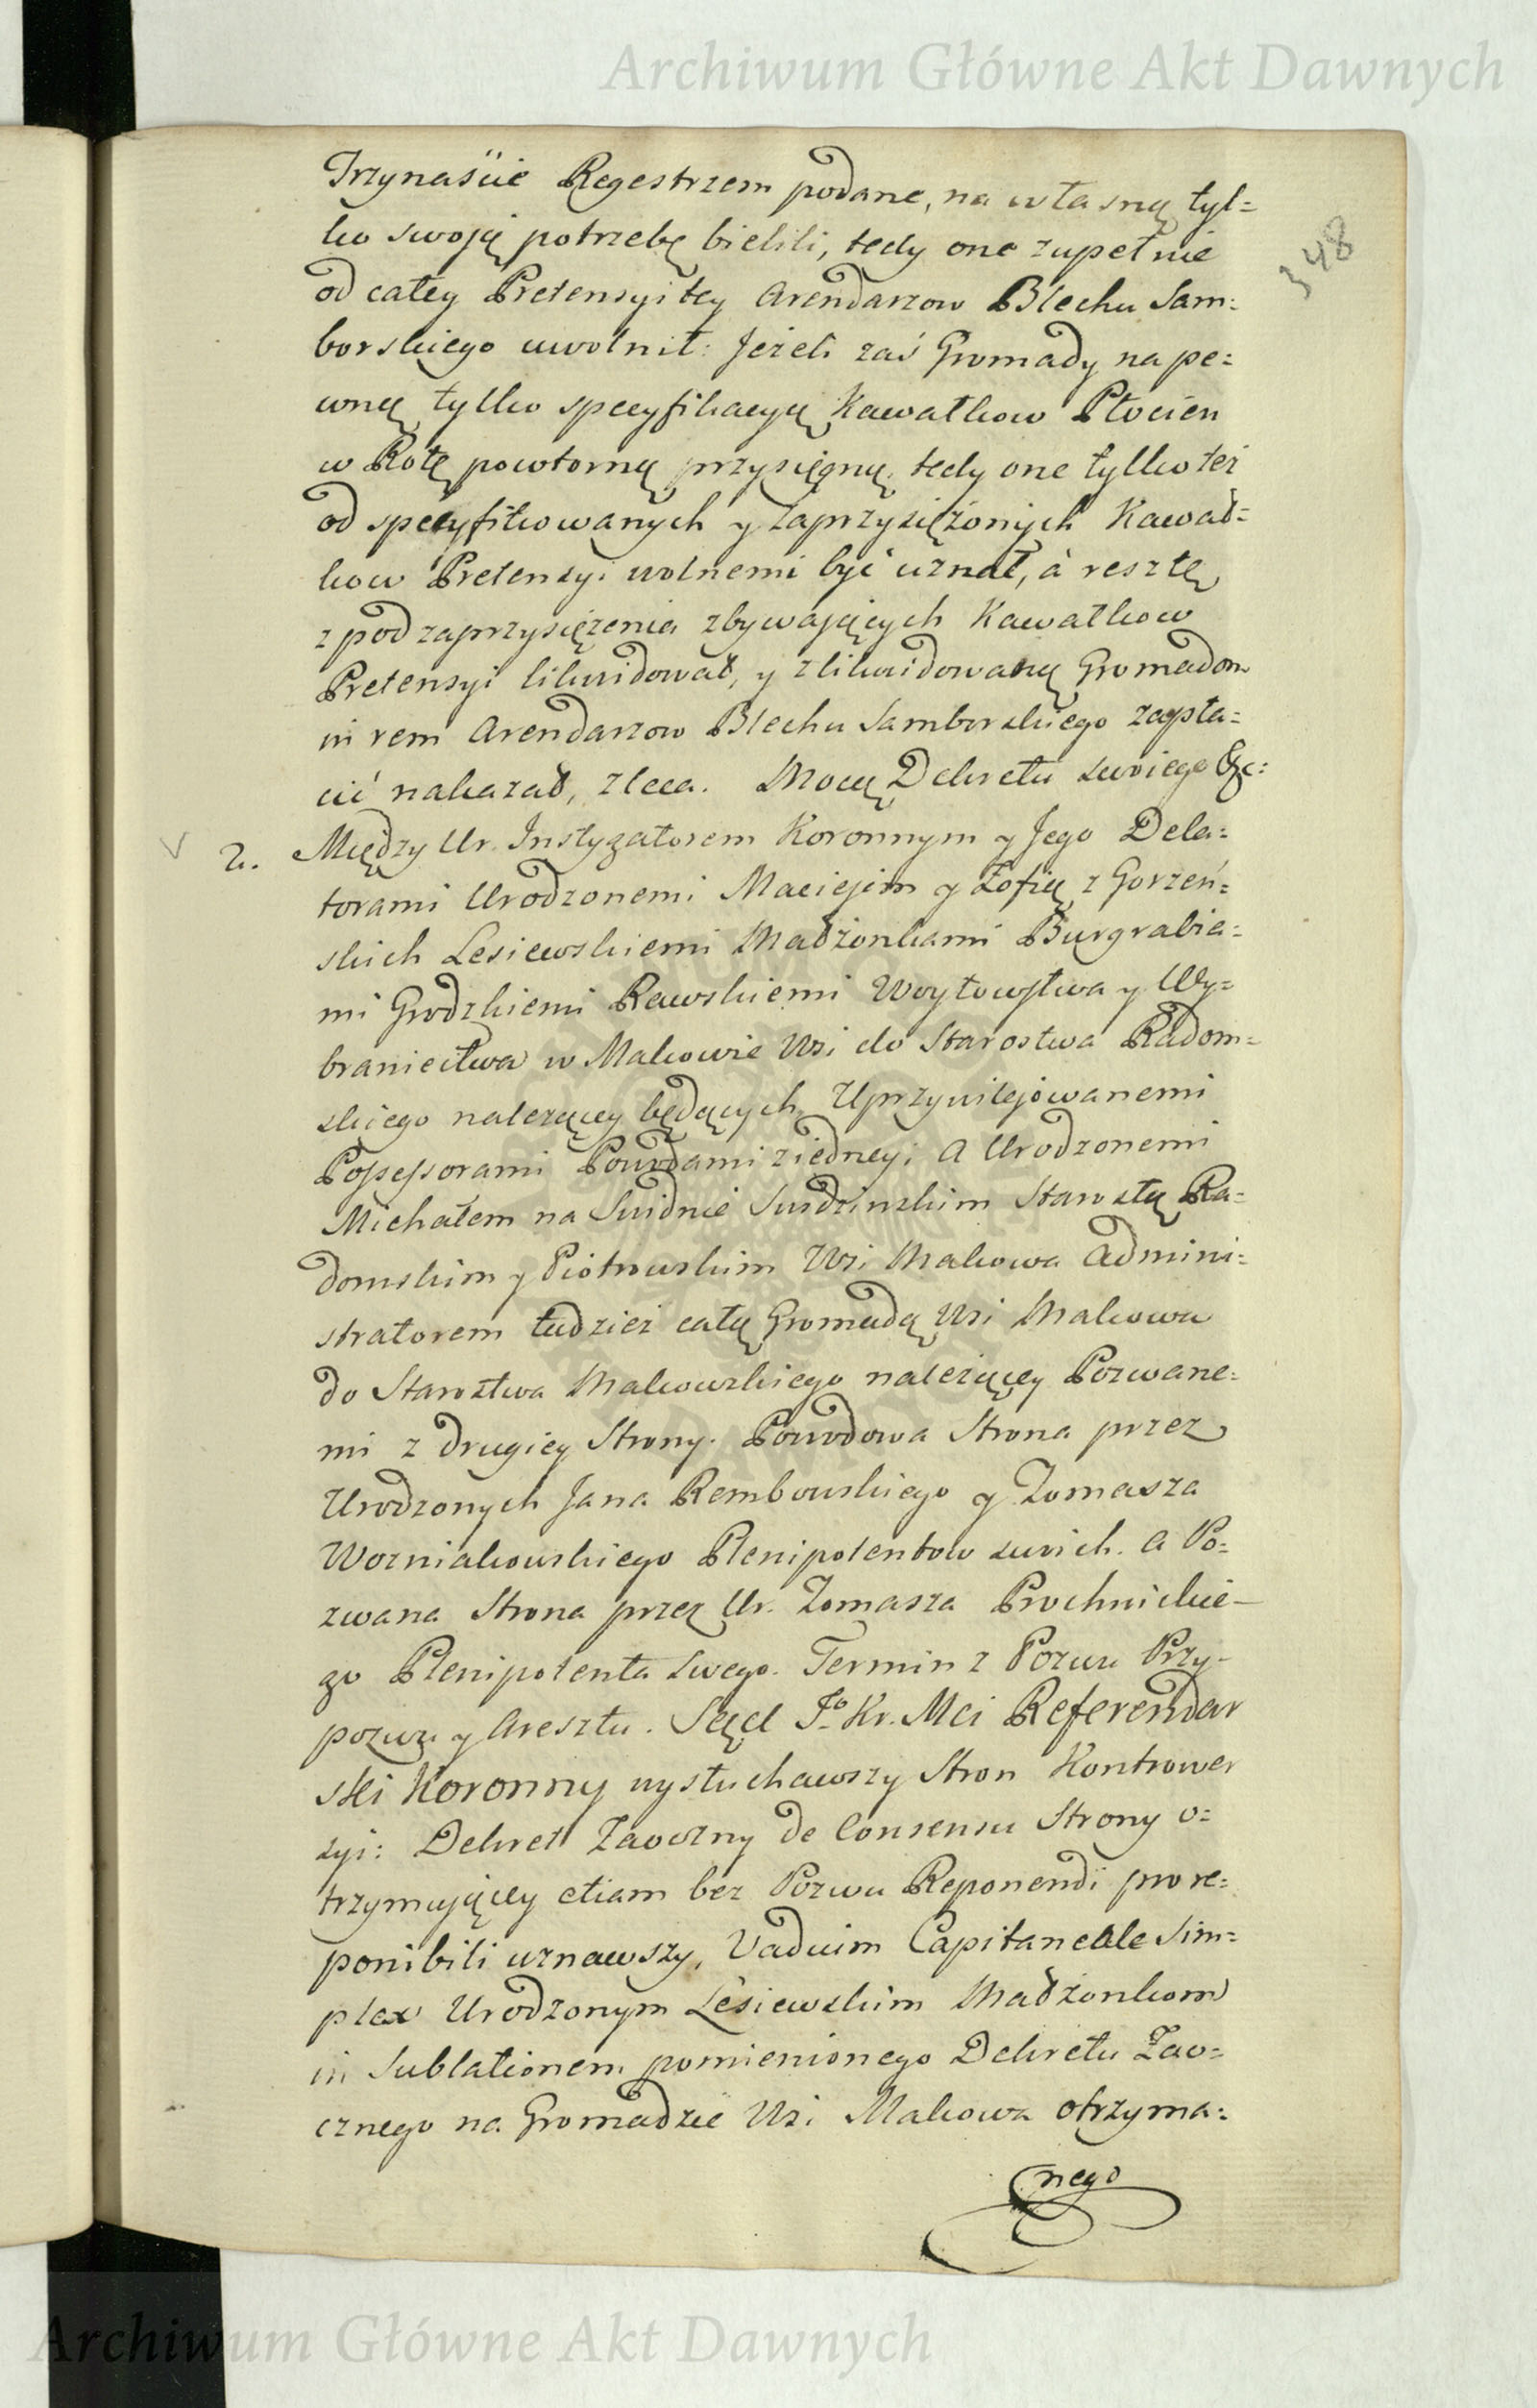 Archiwum Główne Akt Dawnych
348
Trzynaście Regestrzem podane, na własną tyl=
ko swoią potrzebę bielili, tedy one zupełnie
od całey Pretensyi tey Arendarzow Blechu Sam=
borskiego uwolnił: Jeżeli zaś Gromady na pe=
wną tylko specyfikacyą Kawałkow Płocien
w Rotę powtorną przysięgną, tedy one tylko też
od specyfikowanych y zaprzysiężonych Kawał=
kow Pretensyi wolnemi być uznał, à resztę
z pod zaprzysiężenia zbywaiących Kawałkow
Pretensyi likwidował, y zlikwidowaną Gromadom
in rem Arendarzow Blechu Samborskiego zapła=
cić nakazał, zleca. Mocą Dekretu swoiego &c:
2. Między Ur. Instygatorem Koronnym y Jego Dela=
torami Urodzonemi Maciejem y Zofią z Gorzeń=
skich Lesiewskiemi Małżonkami Burgrabia=
mi Grodzkiemi Rawskiemi Woytowstwa y Wy=
braniectwa w Makowie Wsi do Starostwa Radom=
skiego należącey będących Uprzywilejowanemi
Possessorami Powodami z iedney; A Urodzonemi
Michałem na Swidnie Swidzinskim Starostą Ra=
domskim y Piotrowskim Wsi Makowa Admini=
stratorem tudzież całą Gromadą Wsi Makowa
do Starostwa Makowskiego należącey Pozwane=
mi z drugiey Strony. Powodowa Strona przez
Urodzonych Jana Rembowskiego y Tomasza
Wozniakowskiego Plenipotentow swich. A Po=
zwana Strona przez Ur. Tomasza Prochnickie-
go Plenipotenta swego. Termin z Pozwu Przy-
pozwu y Aresztu. Sąd Jo Kr. Mci Referendar
ski Koronny wysłuchawszy Stron Kontrower
syi: Dekret Zaoczny de Consensu Strony o=
trzymuiącey etiam bez Pozwu Reponendi pro re=
ponibili uznawszy, Vadium Capitaneale Sim=
plex Urodzonym Lesiewskim Małżonkom
in Sublationem pomienionego Dekretu Zao=
cznego na Gromadzie Wsi Makowa otrzyma=
nego
Archiwum Główne Akt Dawnych